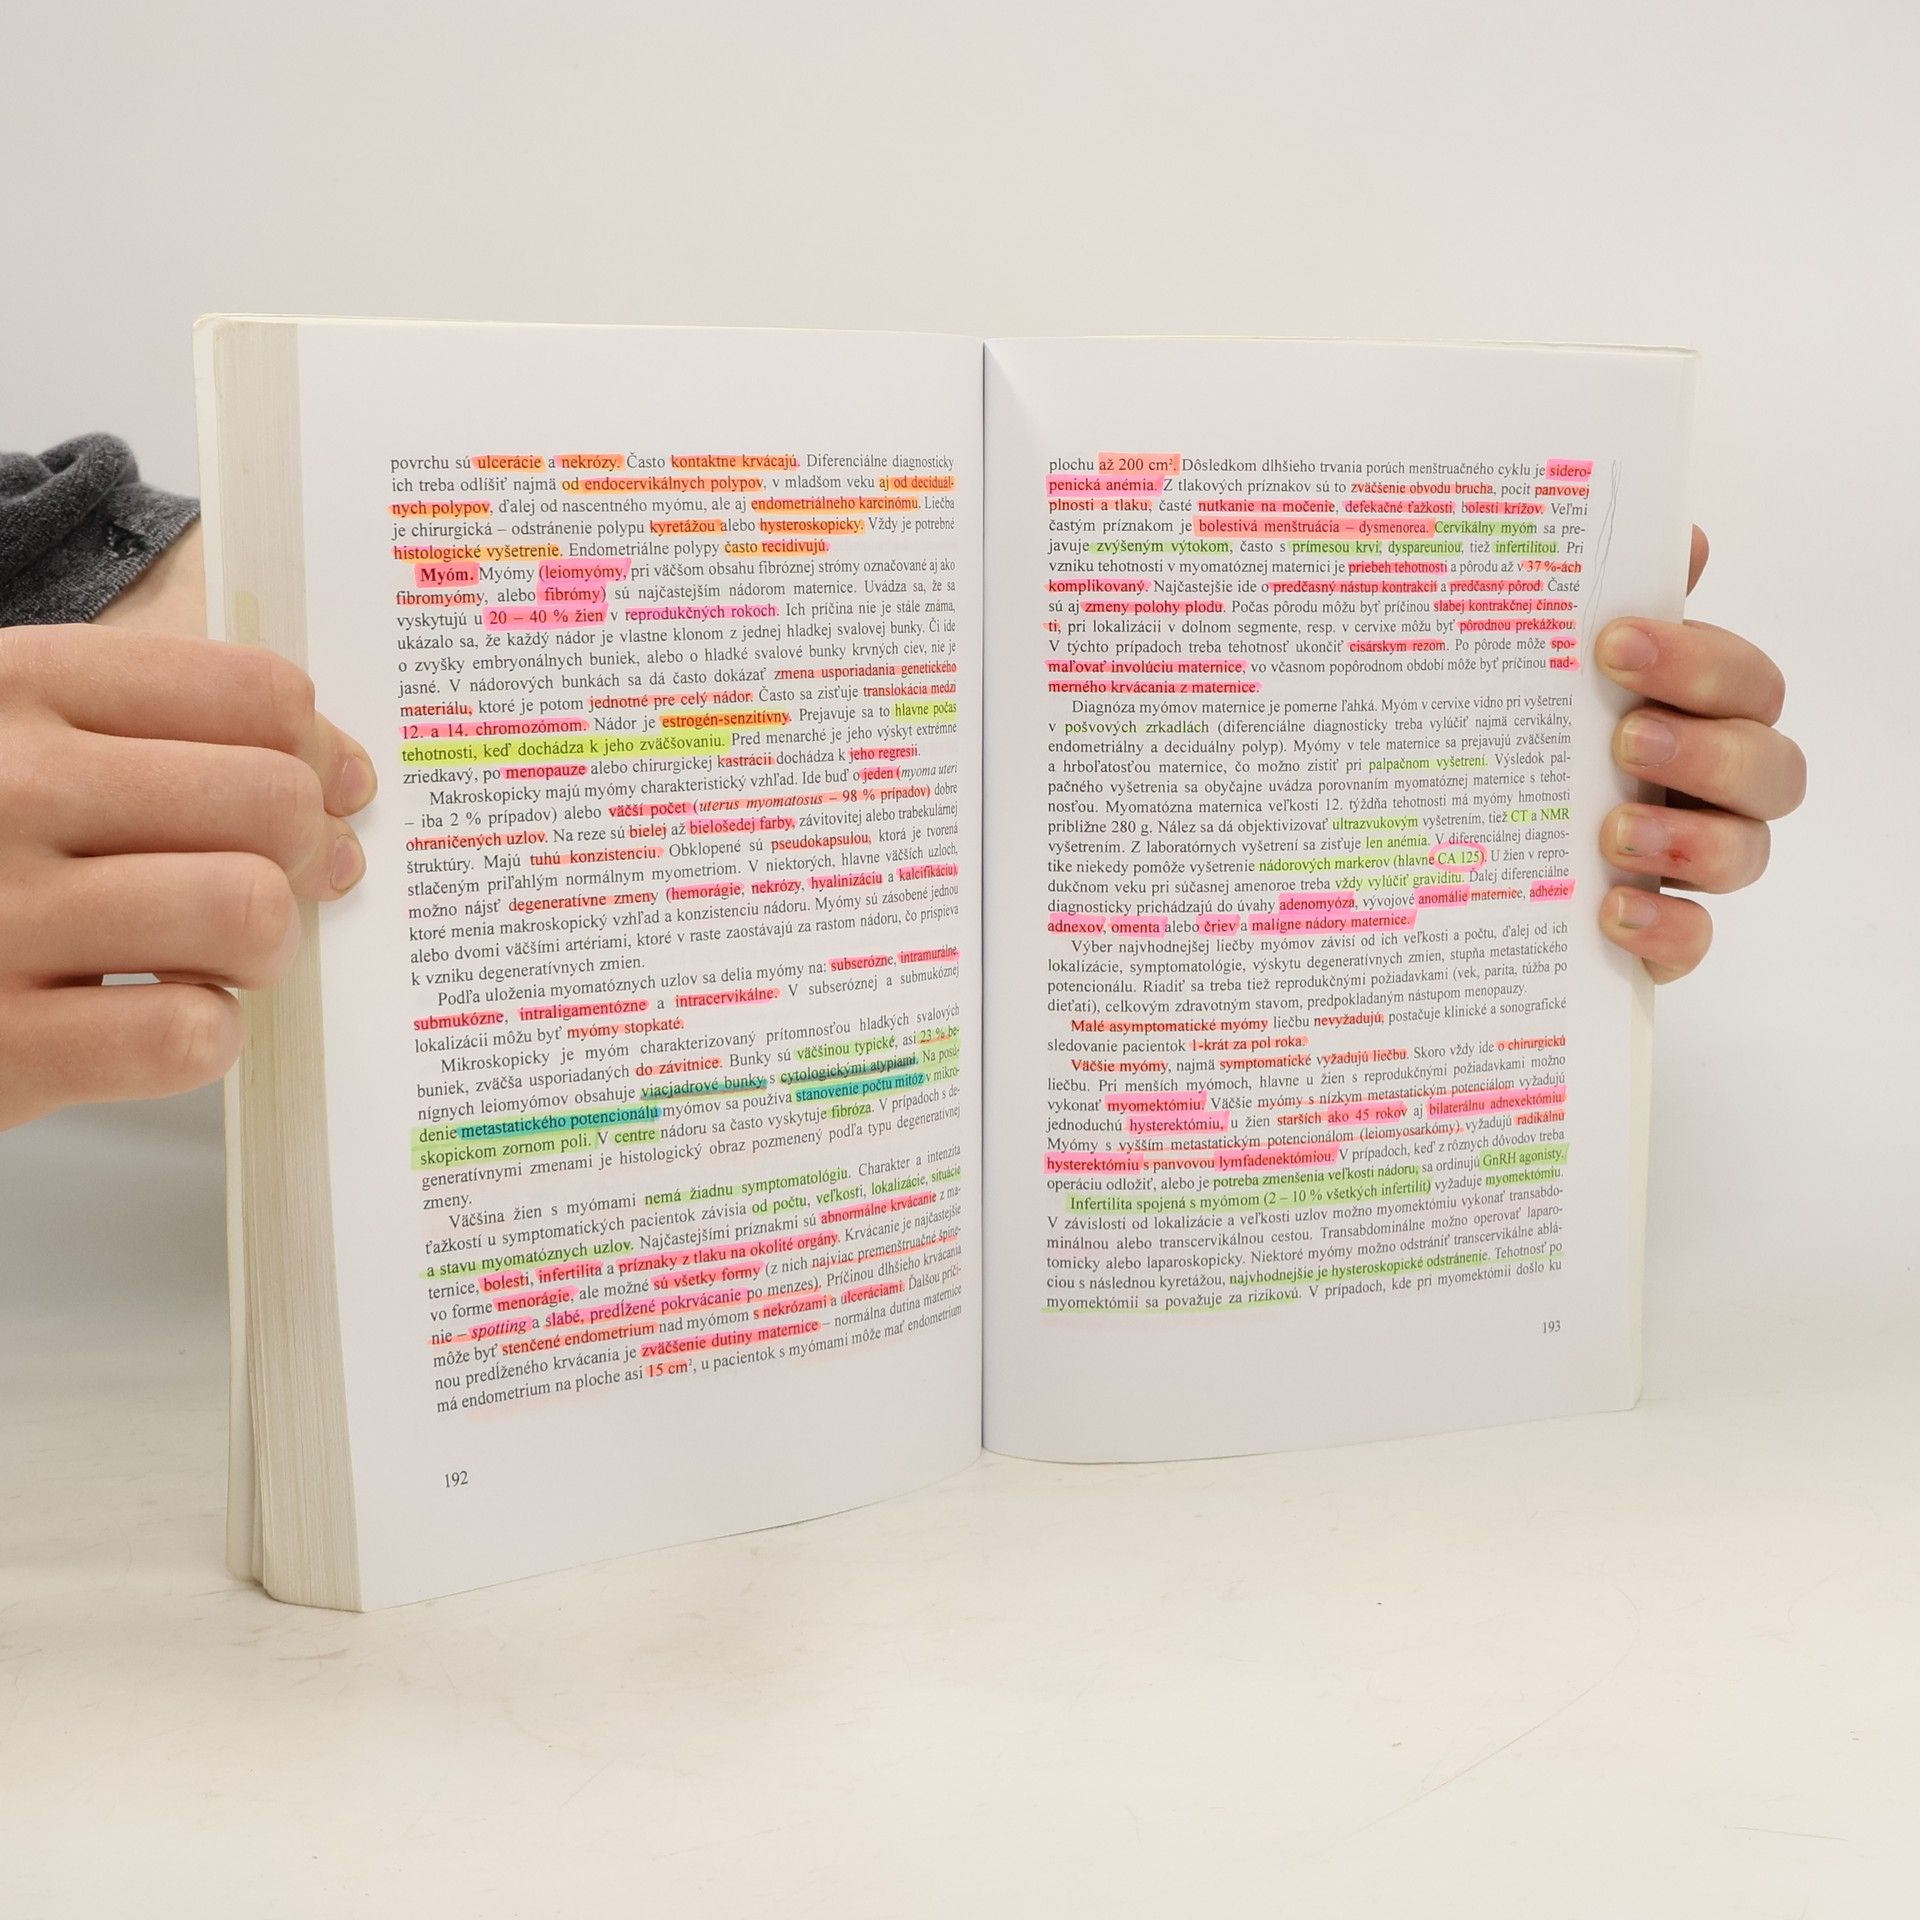 povrchu sú ulcerácie a nekrózy. Často kontaktne krvácajú. Diferenciálne diagnosticky
ich treba odlíšiť najmä od endocervikálnych polypov, v mladšom veku aj od deciduál-
nych polypov, ďalej od nascentného myómu, ale aj endometriálneho karcinómu. Liečba
je chirurgická – odstránenie polypu kyretážou alebo hysteroskopicky. Vždy je potrebné
histologické vyšetrenie. Endometriálne polypy často recidivujú.
Myóm. Myómy (leiomyómy, pri väčšom obsahu fibróznej strómy označované aj ako
fibromyómy, alebo fibrómy) sú najčastejším nádorom maternice. Uvádza sa, že sa
vyskytujú u 20 – 40 % žien v reprodukčných rokoch. Ich príčina nie je stále známa,
ukázalo sa, že každý nádor je vlastne klonom z jednej hladkej svalovej bunky. Či ide
o zvyšky embryonálnych buniek, alebo o hladké svalové bunky krvných ciev, nie je
jasné. V nádorových bunkách sa dá často dokázať zmena usporiadania genetického
materiálu, ktoré je potom jednotné pre celý nádor. Často sa zisťuje translokácia medzi
12. a 14. chromozómom. Nádor je estrogén-senzitívny. Prejavuje sa to hlavne počas
tehotnosti, keď dochádza k jeho zväčšovaniu. Pred menarché je jeho výskyt extrémne
zriedkavý, po menopauze alebo chirurgickej kastrácii dochádza k jeho regresii.
Makroskopicky majú myómy charakteristický vzhľad. Ide buď o jeden (myoma uteri
– iba 2 % prípadov) alebo väčší počet (uterus myomatosus – 98 % prípadov) dobre
ohraničených uzlov. Na reze sú bielej až bielošedej farby, závitovitej alebo trabekulárnej
štruktúry. Majú tuhú konzistenciu. Obklopené sú pseudokapsulou, ktorá je tvorená
stlačeným priľahlým normálnym myometriom. V niektorých, hlavne väčších uzloch,
možno nájsť degeneratívne zmeny (hemorágie, nekrózy, hyalinizáciu a kalcifikáciu),
ktoré menia makroskopický vzhľad a konzistenciu nádoru. Myómy sú zásobené jednou
alebo dvomi väčšími artériami, ktoré v raste zaostávajú za rastom nádoru, čo prispieva
k vzniku degeneratívnych zmien.
Podľa uloženia myomatóznych uzlov sa delia myómy na: subserózne, intramurálne,
submukózne, intraligamentózne a intracervikálne. V subseróznej a submukóznej
lokalizácii môžu byť myómy stopkaté.
Mikroskopicky je myóm charakterizovaný prítomnosťou hladkých svalových
buniek, zväčša usporiadaných do závitnice. Bunky sú väčšinou typické, asi 23 % be-
nígnych leiomyómov obsahuje viacjadrové bunky s cytologickými atypiami. Na posú-
denie metastatického potencionálu myómov sa používa stanovenie počtu mitóz v mikro-
skopickom zornom poli. V centre nádoru sa často vyskytuje fibróza. V prípadoch s de-
generatívnymi zmenami je histologický obraz pozmenený podľa typu degeneratívnej
zmeny.
Väčšina žien s myómami nemá žiadnu symptomatológiu. Charakter a intenzita
ťažkostí u symptomatických pacientok závisia od počtu, veľkosti, lokalizácie, situácie
a stavu myomatóznych uzlov. Najčastejšími príznakmi sú abnormálne krvácanie z ma-
ternice, bolesti, infertilita a príznaky z tlaku na okolité orgány. Krvácanie je najčastejšie
vo forme menorágie, ale možné sú všetky formy (z nich najviac premenštruačné špine-
nie – spotting a slabé, predĺžené pokrvácanie po menzes). Príčinou dlhšieho krvácania
môže byť stenčené endometrium nad myómom s nekrózami a ulceráciami. Ďalšou príči-
nou predĺženého krvácania je zväčšenie dutiny maternice – normálna dutina maternice
má endometrium na ploche asi 15 cm², u pacientok s myómami môže mať endometrium
192
plochu až 200 cm². Dôsledkom dlhšieho trvania porúch menštruačného cyklu je sidero-
penická anémia. Z tlakových príznakov sú to zväčšenie obvodu brucha, pocit panvovej
plnosti a tlaku, časté nutkanie na močenie, defekačné ťažkosti, bolesti krížov. Veľmi
častým príznakom je bolestivá menštruácia – dysmenorea. Cervikálny myóm sa pre-
javuje zvýšeným výtokom, často s prímesou krvi, dyspareuniou, tiež infertilitou. Pri
vzniku tehotnosti v myomatóznej maternici je priebeh tehotnosti a pôrodu až v 37 %-ách
komplikovaný. Najčastejšie ide o predčasný nástup kontrakcií a predčasný pôrod. Časté
sú aj zmeny polohy plodu. Počas pôrodu môžu byť príčinou slabej kontrakčnej činnos-
ti, pri lokalizácii v dolnom segmente, resp. v cervixe môžu byť pôrodnou prekážkou.
V týchto prípadoch treba tehotnosť ukončiť cisárskym rezom. Po pôrode môže spo-
maľovať involúciu maternice, vo včasnom popôrodnom období môže byť príčinou nad-
merného krvácania z maternice.
Diagnóza myómov maternice je pomerne ľahká. Myóm v cervixe vidno pri vyšetrení
v pošvových zrkadlách (diferenciálne diagnosticky treba vylúčiť najmä cervikálny,
endometriálny a deciduálny polyp). Myómy v tele maternice sa prejavujú zväčšením
a hrboľatosťou maternice, čo možno zistiť pri palpačnom vyšetrení. Výsledok pal-
pačného vyšetrenia sa obyčajne uvádza porovnaním myomatóznej maternice s tehot-
nosťou. Myomatózna maternica veľkosti 12. týždňa tehotnosti má myómy hmotnosti
približne 280 g. Nález sa dá objektivizovať ultrazvukovým vyšetrením, tiež CT a NMR
vyšetrením. Z laboratórnych vyšetrení sa zisťuje len anémia. V diferenciálnej diagnos-
tike niekedy pomôže vyšetrenie nádorových markerov (hlavne CA 125). U žien v repro-
dukčnom veku pri súčasnej amenoroe treba vždy vylúčiť graviditu. Ďalej diferenciálne
diagnosticky prichádzajú do úvahy adenomyóza, vývojové anomálie maternice, adhézie
adnexov, omenta alebo čriev a malígne nádory maternice.
Výber najvhodnejšej liečby myómov závisí od ich veľkosti a počtu, ďalej od ich
lokalizácie, symptomatológie, výskytu degeneratívnych zmien, stupňa metastatického
potencionálu. Riadiť sa treba tiež reprodukčnými požiadavkami (vek, parita, túžba po
dieťati), celkovým zdravotným stavom, predpokladaným nástupom menopauzy.
Malé asymptomatické myómy liečbu nevyžadujú, postačuje klinické a sonografické
sledovanie pacientok 1-krát za pol roka.
Väčšie myómy, najmä symptomatické vyžadujú liečbu. Skoro vždy ide o chirurgickú
liečbu. Pri menších myómoch, hlavne u žien s reprodukčnými požiadavkami možno
vykonať myomektómiu. Väčšie myómy s nízkym metastatickým potenciálom vyžadujú
jednoduchú hysterektómiu, u žien starších ako 45 rokov aj bilaterálnu adnexektómiu.
Myómy s vyšším metastatickým potencionálom (leiomyosarkómy) vyžadujú radikálnu
hysterektómiu s panvovou lymfadenektómiou. V prípadoch, keď z rôznych dôvodov treba
operáciu odložiť, alebo je potreba zmenšenia veľkosti nádoru, sa ordinujú GnRH agonisty.
Infertilita spojená s myómom (2 – 10 % všetkých infertilít) vyžaduje myomektómiu.
V závislosti od lokalizácie a veľkosti uzlov možno myomektómiu vykonať transabdo-
minálnou alebo transcervikálnou cestou. Transabdominálne možno operovať laparo-
tomicky alebo laparoskopicky. Niektoré myómy možno odstrániť transcervikálne ablá-
ciou s následnou kyretážou, najvhodnejšie je hysteroskopické odstránenie. Tehotnosť po
myomektómii sa považuje za rizikovú. V prípadoch, kde pri myomektómii došlo ku
193